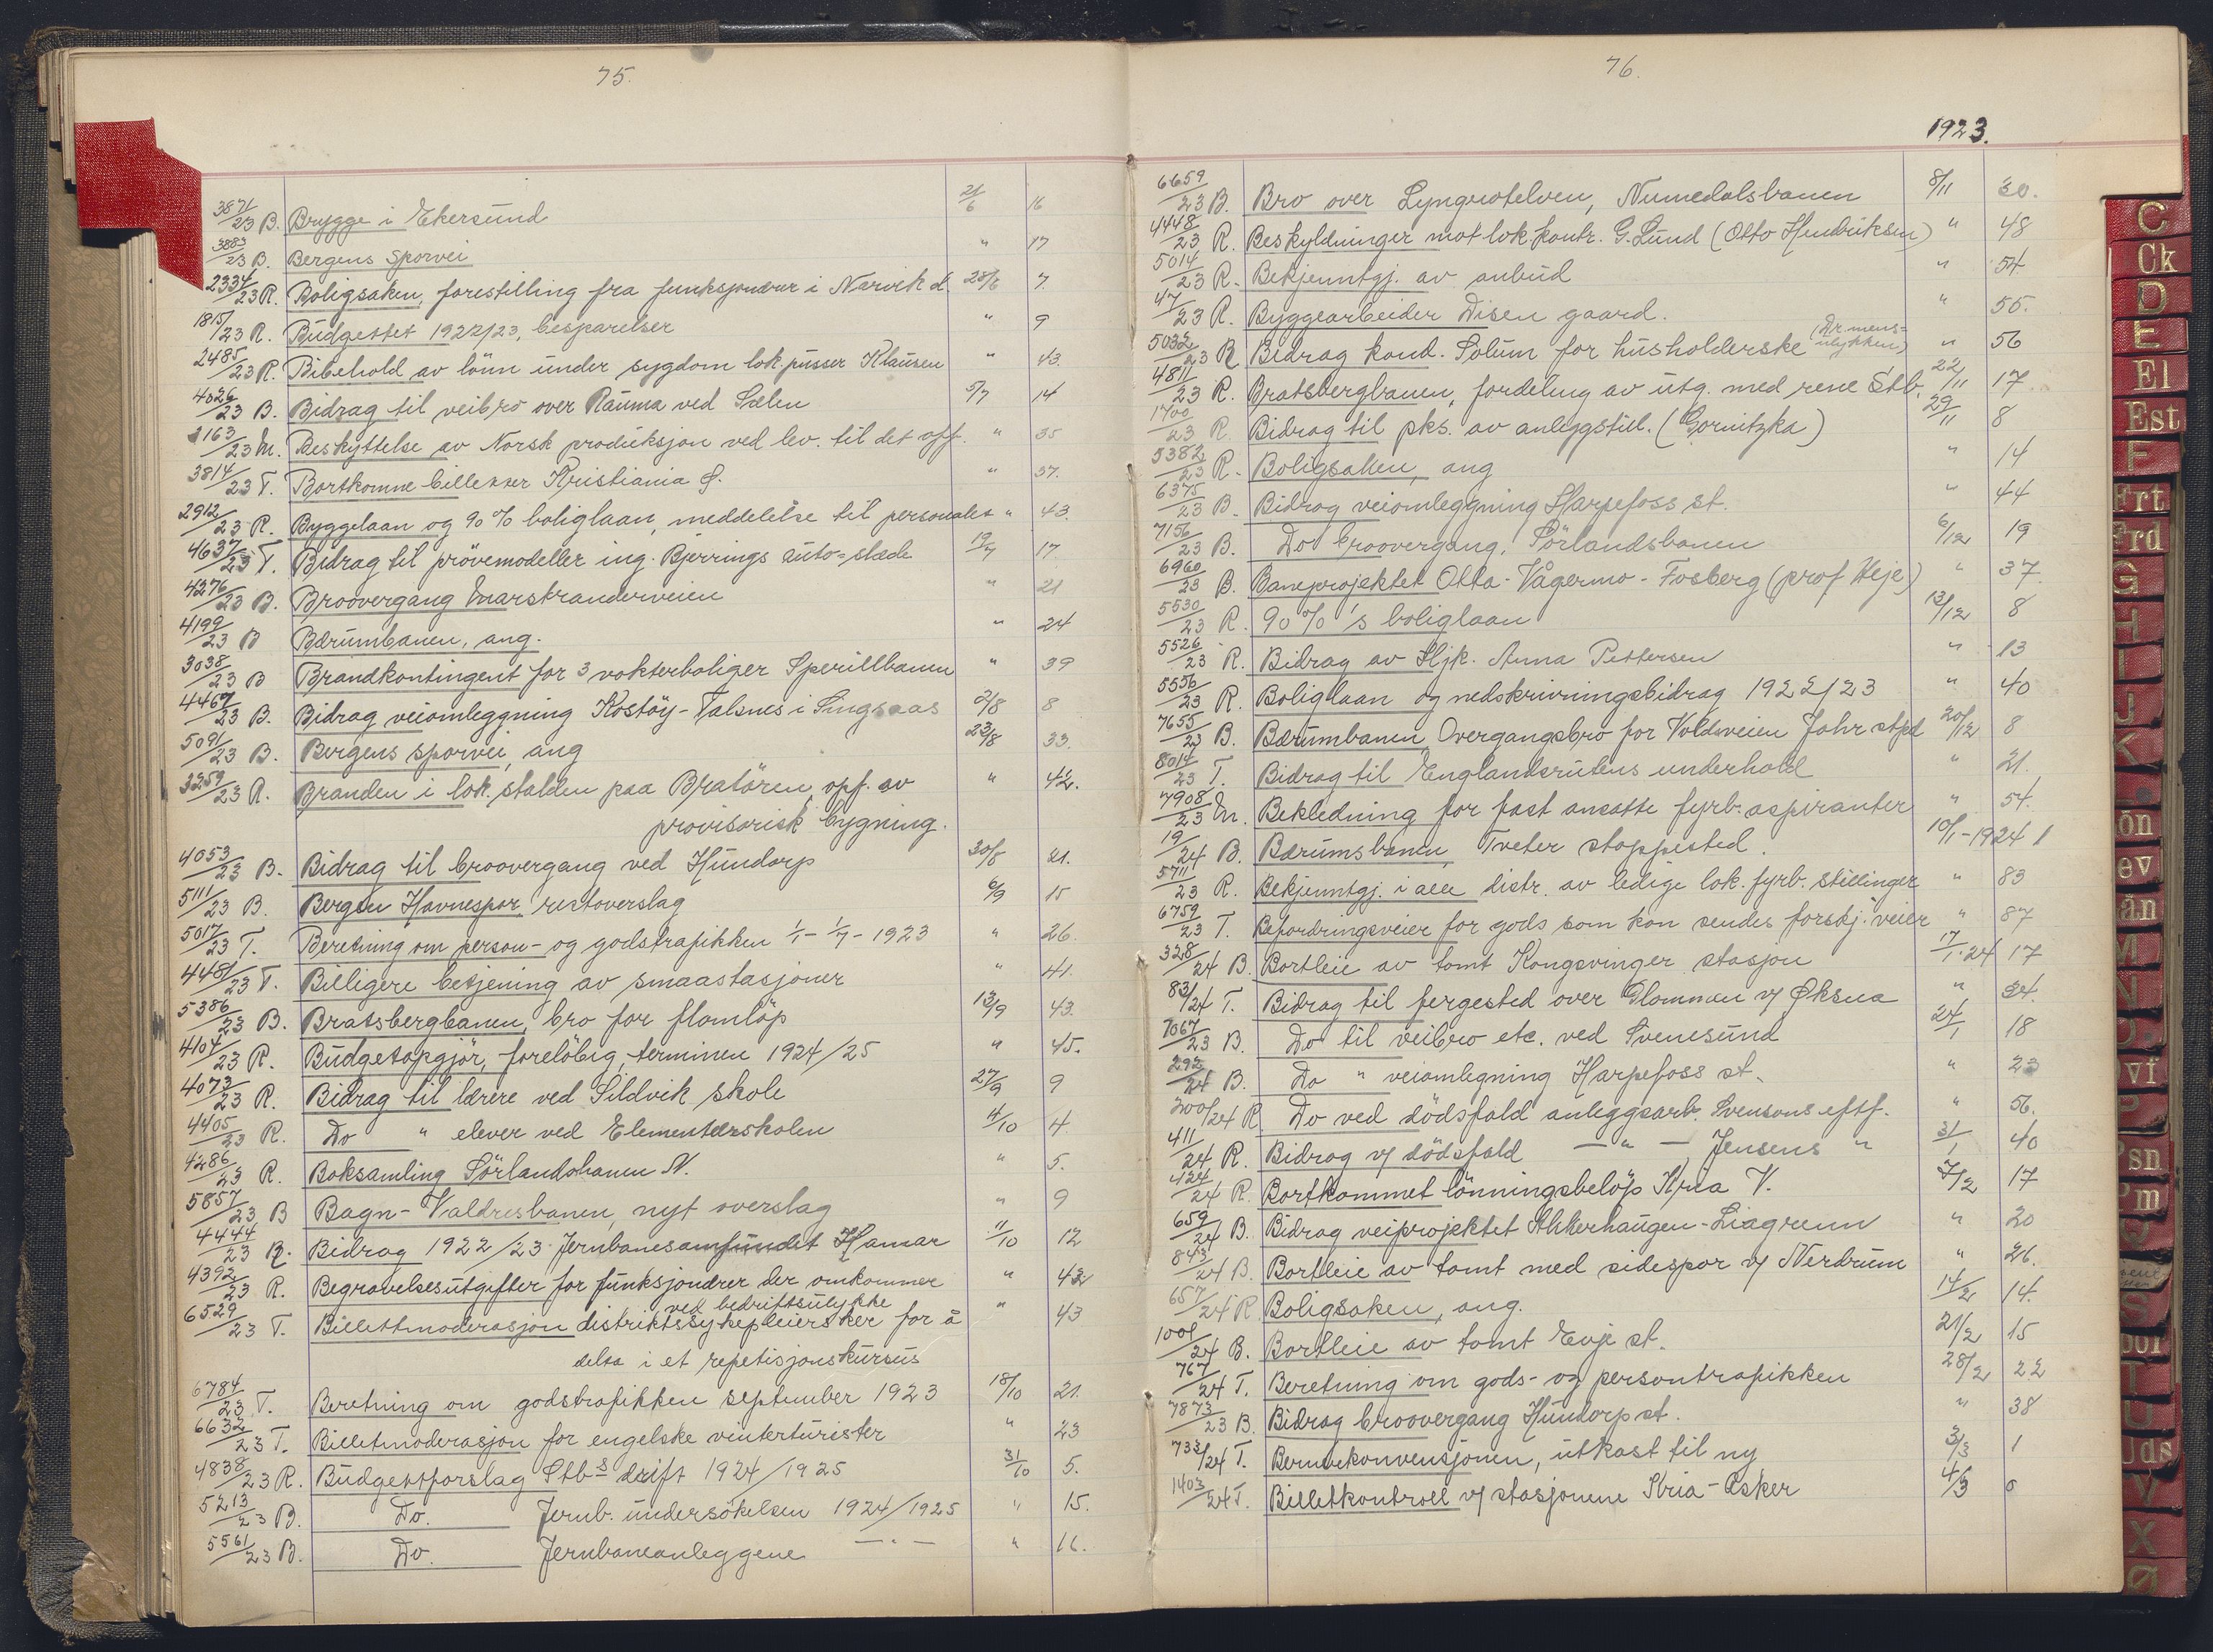 75.
3871/23 B. Brygge i Ekersund 21/6 16
3883/23 B. Bergens Sporvei " 17
2334/23 R. Boligsaken, forestilling fra funksjonærer i Narvik d. 28/6 7.
1815/23 R. Budgettet 1922/23, besparelser " 9
2485/23 R. Bibehold av lönn under sygdom lok.pusser Klausen " 43.
4026/23 B. Bidrag til veibro over Rauma ved Sælen 5/7 14
2163/23 M. Beskyttelse av Norsk produksjon ved lev. til det off. " 35
3814/23 T. Bortkomne billetter Kristiania Ø. " 37.
2912/23 R. Byggelaan og 90% boliglaan, meddelelse til personalet " 43.
4637/23 T. Bidrag til prövemodeller ing. Bjerrings auto-slæde 19/7 17.
4276/23 B. Broovergang Marstranderveien " 21
4199/23 B Bærumbanen, ang. " 24
3038/23 B Brandkontingent for 3 vokterboliger Sperillbanen " 39
4467/23 B. Bidrag veiomleggning Kostöy-Talsnes i Singsaas 2/8 8
5091/23 B. Bergens sporvei, ang 23/8 33.
3259/23 R. Branden i lok.stalden paa Bratören, opf. av " 42.
provisorisk bygning.
4053/23 B. Bidrag til broovergang ved Hundorp 30/8 21.
5111/23 B. Bergen Havnespor restoverslag 6/9 15
5017/23 T. Beretning om person- og godstrafikken 1/1 - 1/7 - 1923 " 26.
4481/23 T. Billigere betjening av smaastasjoner " 41.
5386/23 B. Bratsbergbanen, bro for flomlöp 13/9 43.
4104/23 R. Budgetopgjör, forelöbig, terminen 1924/25 " 45.
4073/23 R. Bidrag til lærere ved Sildvik skole 27/9 9
4405/23 R. Do " elever ved Elementærskolen 4/10 4.
4286/23 R. Boksamling Sörlandsbanen N. " 5.
5857/23 B Bagn-Valdresbanen, nyt overslag " 9
4444/23 R. Bidrag 1922/23 Jernbanesamfundet Hamar 11/10 12
4392/23 R. Begravelsesutgifter for funksjonærer der omkommer " 42
ved bedriftsulykke
6529/23 T. Billettmoderasjon distriktssykepleiersker for å " 43
delta i et repetisjonskursus
6784/23 T. Beretning om godstrafikken september 1923 18/10 21.
6632/23 T. Billetmoderasjon for engelske vinterturister " 23
4838/23 R. Budgettforslag Stbs drift 1924/1925 31/10 5.
5213/23 B. Do. Jernb. undersökelsen 1924/1925 " 15.
5561/23 B. Do. Jernbaneanleggene — " — " 16.
76.
1923.
6659/23 B. Bro over Lyngrotelven, Numedalsbanen 8/11 30.
4448/23 R. Beskyldninger mot lok.kontr. G. Lund (Otto Hendriksen) " 48
5014/23 R. Bekjenntgj. av anbud " 54
47/23 R. Byggearbeider Disen gaard. " 55.
5032/23 R Bidrag kond. Solum for husholderske (Dr.mens- ulykken) " 56
4811/23 R. Bratsbergbanen, fordeling av utg. med rene Stb. 22/11 17
1700/23 R. Bidrag til pks. av anleggstid. (Gornitzka) 29/11 8
5382/23 R. Boligsaken, ang " 14
6375/23 B. Bidrag veiomleggning Harpefoss st. " 44
7156/23 B. Do broovergang, Sörlandsbanen 6/12 19
6960/23 B. Baneprojektet Otta-Vågermo-Fosberg (prof Heje) " 37.
5530/23 R. 90%'s boliglaan 13/12 8
5526/23 R. Bidrag av Hjk. Anna Pettersen " 13
5556/23 R. Boliglaan og nedskrivningsbidrag 1922/23 " 40
7655/23 B. Bærumbanen, Overgangsbro for Voldsveien Jahr stpl 20/12 8
8014/23 T. Bidrag til Englandsrutens underhold " 21.
7908/23 M. Bekledning for fast ansatte fyrb.aspiranter " 54.
19/24 B. Bærumsbanen, Tveter stoppested. 10/1-1924 1
5711/23 R. Bekjenntgj. i alle distr. av ledige lok.fyrb. stillinger " 83
6759/23 T. Befordringsveier for gods som kan sendes forskj. veier " 87
328/24 B. Bortleie av tomt Kongsvinger stasjon 17/1-24 17
83/24 T. Bidrag til fergested over Glommen v/ Øksna " 34.
7067/23 B. Do til veibro etc. ved Svenesund 24/1 18
292/24 B. Do " veiomlegning Harpefoss st. " 23
200/24 R Do ved dödsfald anleggsarb. Svensons eftf. " 56.
411/24 R. Bidrag v/ dödsfald — " — Jensens " 31/1 40
424/24 R. Bortkommet lönningsbelöp Kria V. 7/2 17
659/24 B. Bidrag veiprojektet Akkerhaugen-Liagrenn " 20
843/24 B. Bortleie av tomt med sidespor v/ Nerdrum " 26.
657/24 R Boligsaken, ang. 14/2 14.
1001/24 B. Bortleie av tomt Evje st. 21/2 15
767/24 T. Beretning om gods- og persontrafikken 28/2 22
7873/23 B. Bidrag broovergang Hundorp st. " 38
733/24 T. Bernekonvensjonen, utkast til ny 3/3 1
1403/24 T. Billetkontroll v/ stasjonene Kria-Asker 4/3
C
Ck
D
E
El
Est
F
Frt
Frd
G
H
I
J
K
M
N
Psn
S
T
U
Uds
V
X
Ø